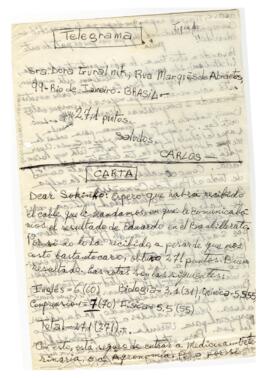 Telegrama
Sra. Dora Rua Marquês de Abrantes
99-Rio de Janeiro-BRASIL-
271 puntos.
Saludos,
CARLOS
CARTA
Dear Espero que habrá recibido
el cable que le mandamos, en que le comunicaba
mos el resultado de Eduardo en el Bachillerato
Por si no lo ha recibido, a pesar de que nos
costó bastante caro, obtuvo 271 puntos. Buen
resultado. Las notas son las siguientes:
Inglés-6(60) Biología-3,1(31) Química-5,5(55)
7(70) Física-5,5(55)
Total-271(27,1).
Con esto, está seguro de entrar a Medicina
rinaria, o a Agronomía,